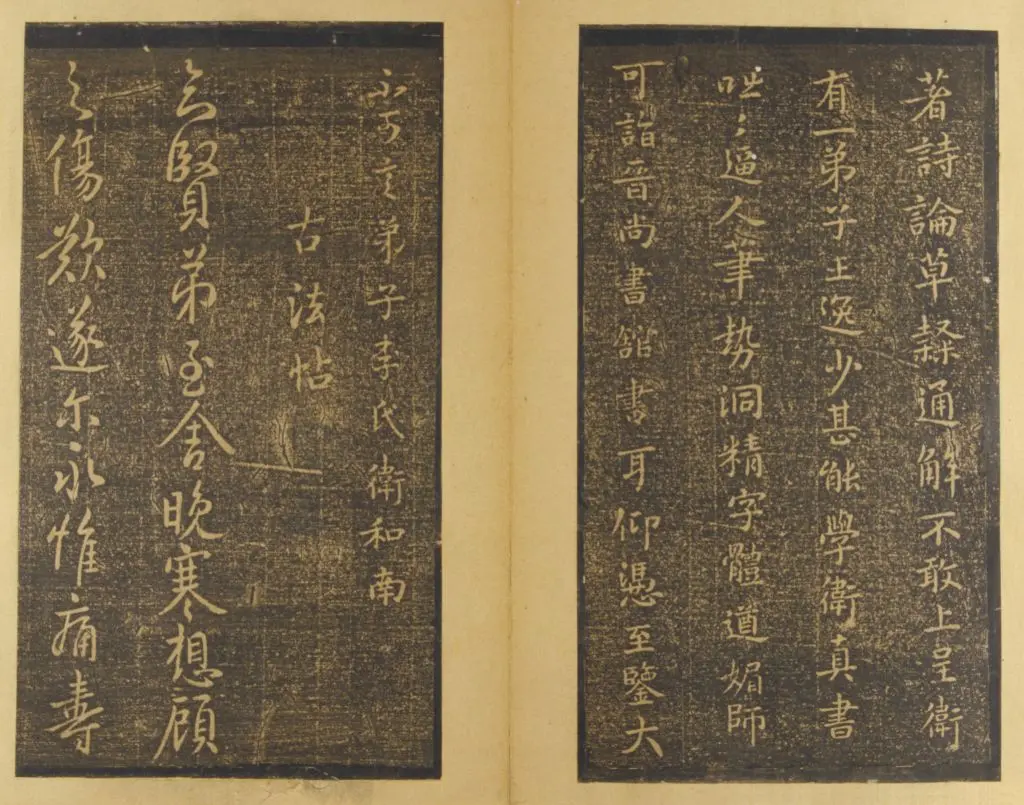 著詩論草隸通解不敢上呈衛
有一弟子王逸少甚能學衛真書
咄〻逼人筆勢洞精字體遒媚師
可詣晉尚書舘書耳仰憑至鑒大
不可言弟子李氏衛和南
古法帖
賢弟至舍晚寒想顧
之傷歎遂尔永惟痛壽